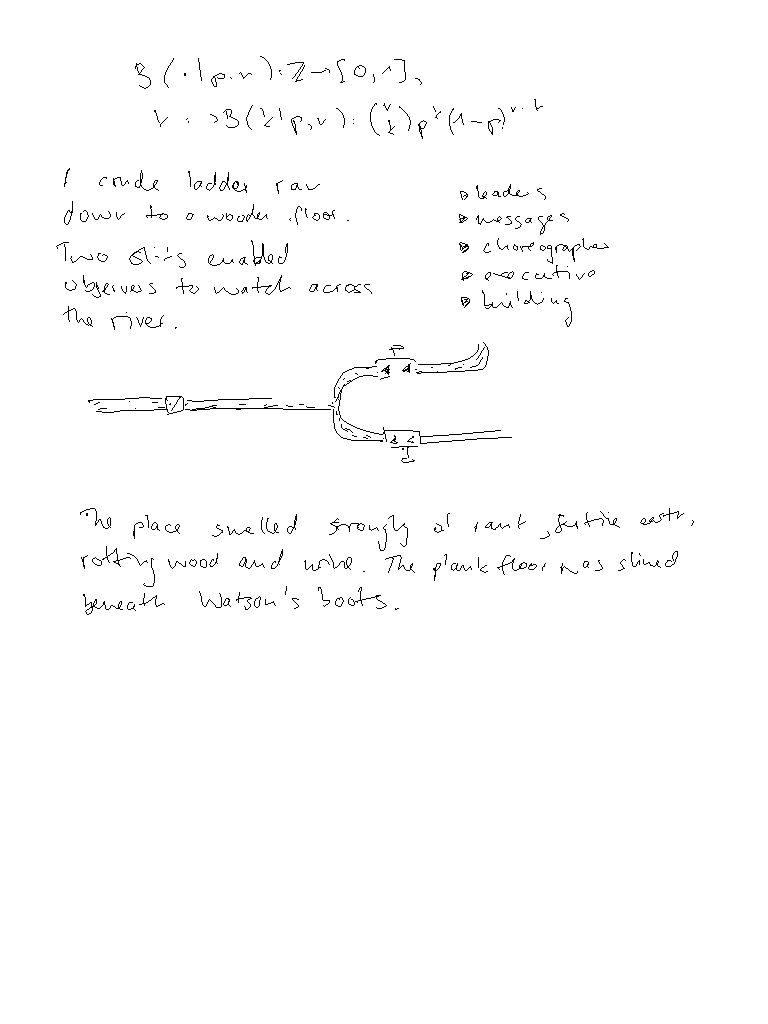 B(·|p,n): ℤ→[0,1],
k ↦ B(k|p,n): (n k) p^k (1-p)^n-k
A crude ladder ran
down to a wooden floor.
Two slits enabled
observers to watch across
the river.
leaders
messages
choreographer
executive
building
The place smelled strongly of rank, fertile earth,
rotting wood and urine. The plank floor was slimed
beneath Watson's boots.